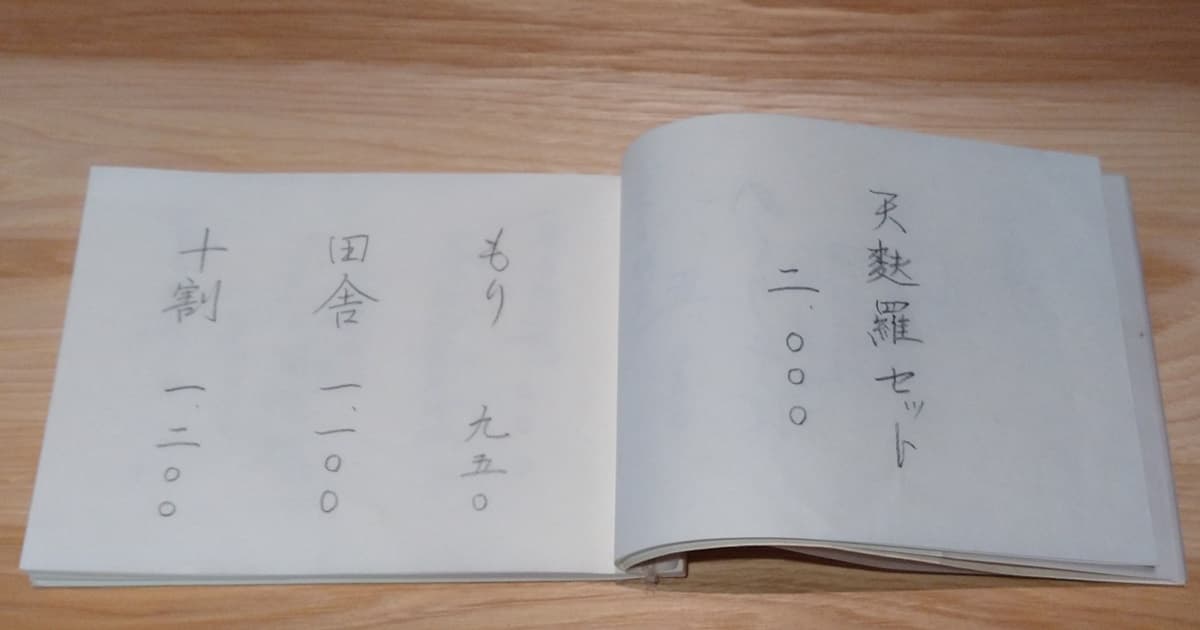 天麩羅セット
二、〇〇〇
もり 九五〇
田舎 一、一〇〇
十割 一、二〇〇